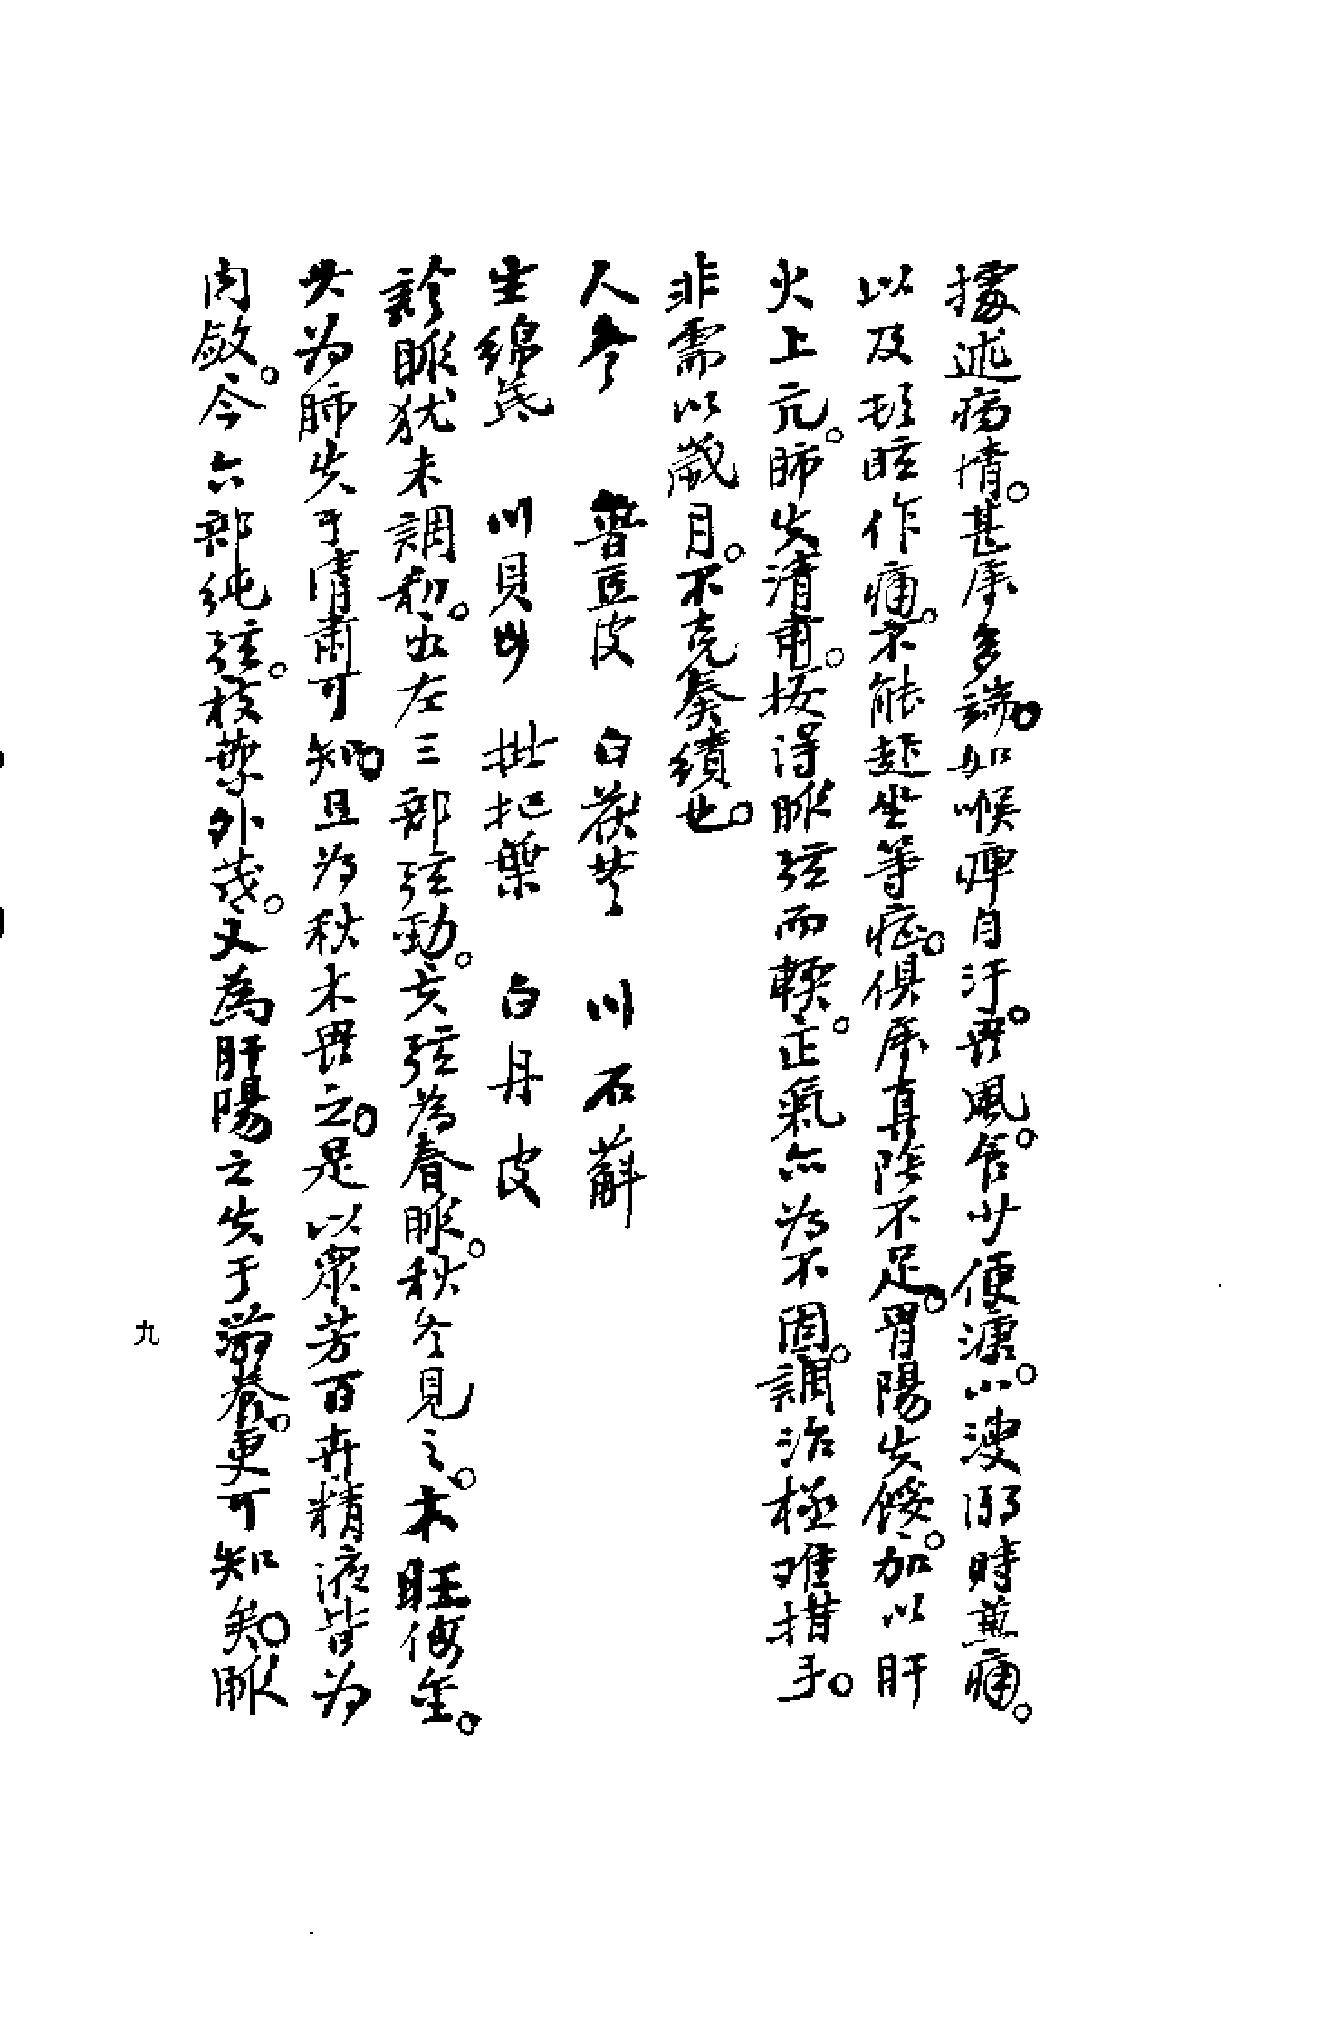 據述病情。甚屬多端。如喉痺自汗。畏風。食少便溏。小溲溺時莖痛。
以及頭眩作痛。不能起坐等症。俱屬真陰不足。胃陽失餒。加以肝
火上亢。肺失清肅。按得脉弦而輭。正氣亦為不固。調治極难措手。
非需以歲月。不克奏績也。
人參 穞豆皮 白茯苓 川石斛
生綿芪 川貝母 枇杷葉 白丹皮
診脉犹未調和。右左三部弦勁。夫弦為春脉。秋冬見之。木旺侮金。
共为肺失于清肅可知。且为秋木畏之。是以眾芳百卉精液皆为
內斂。今六部純弦。枝葉外茂。又為肝陽之失于滋養。更可知矣。脉
九